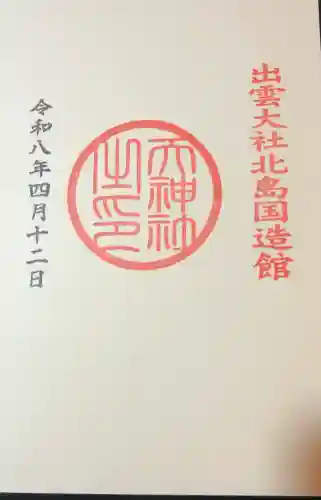 出雲大社北島国造館
天神社
之印
令和八年四月十二日